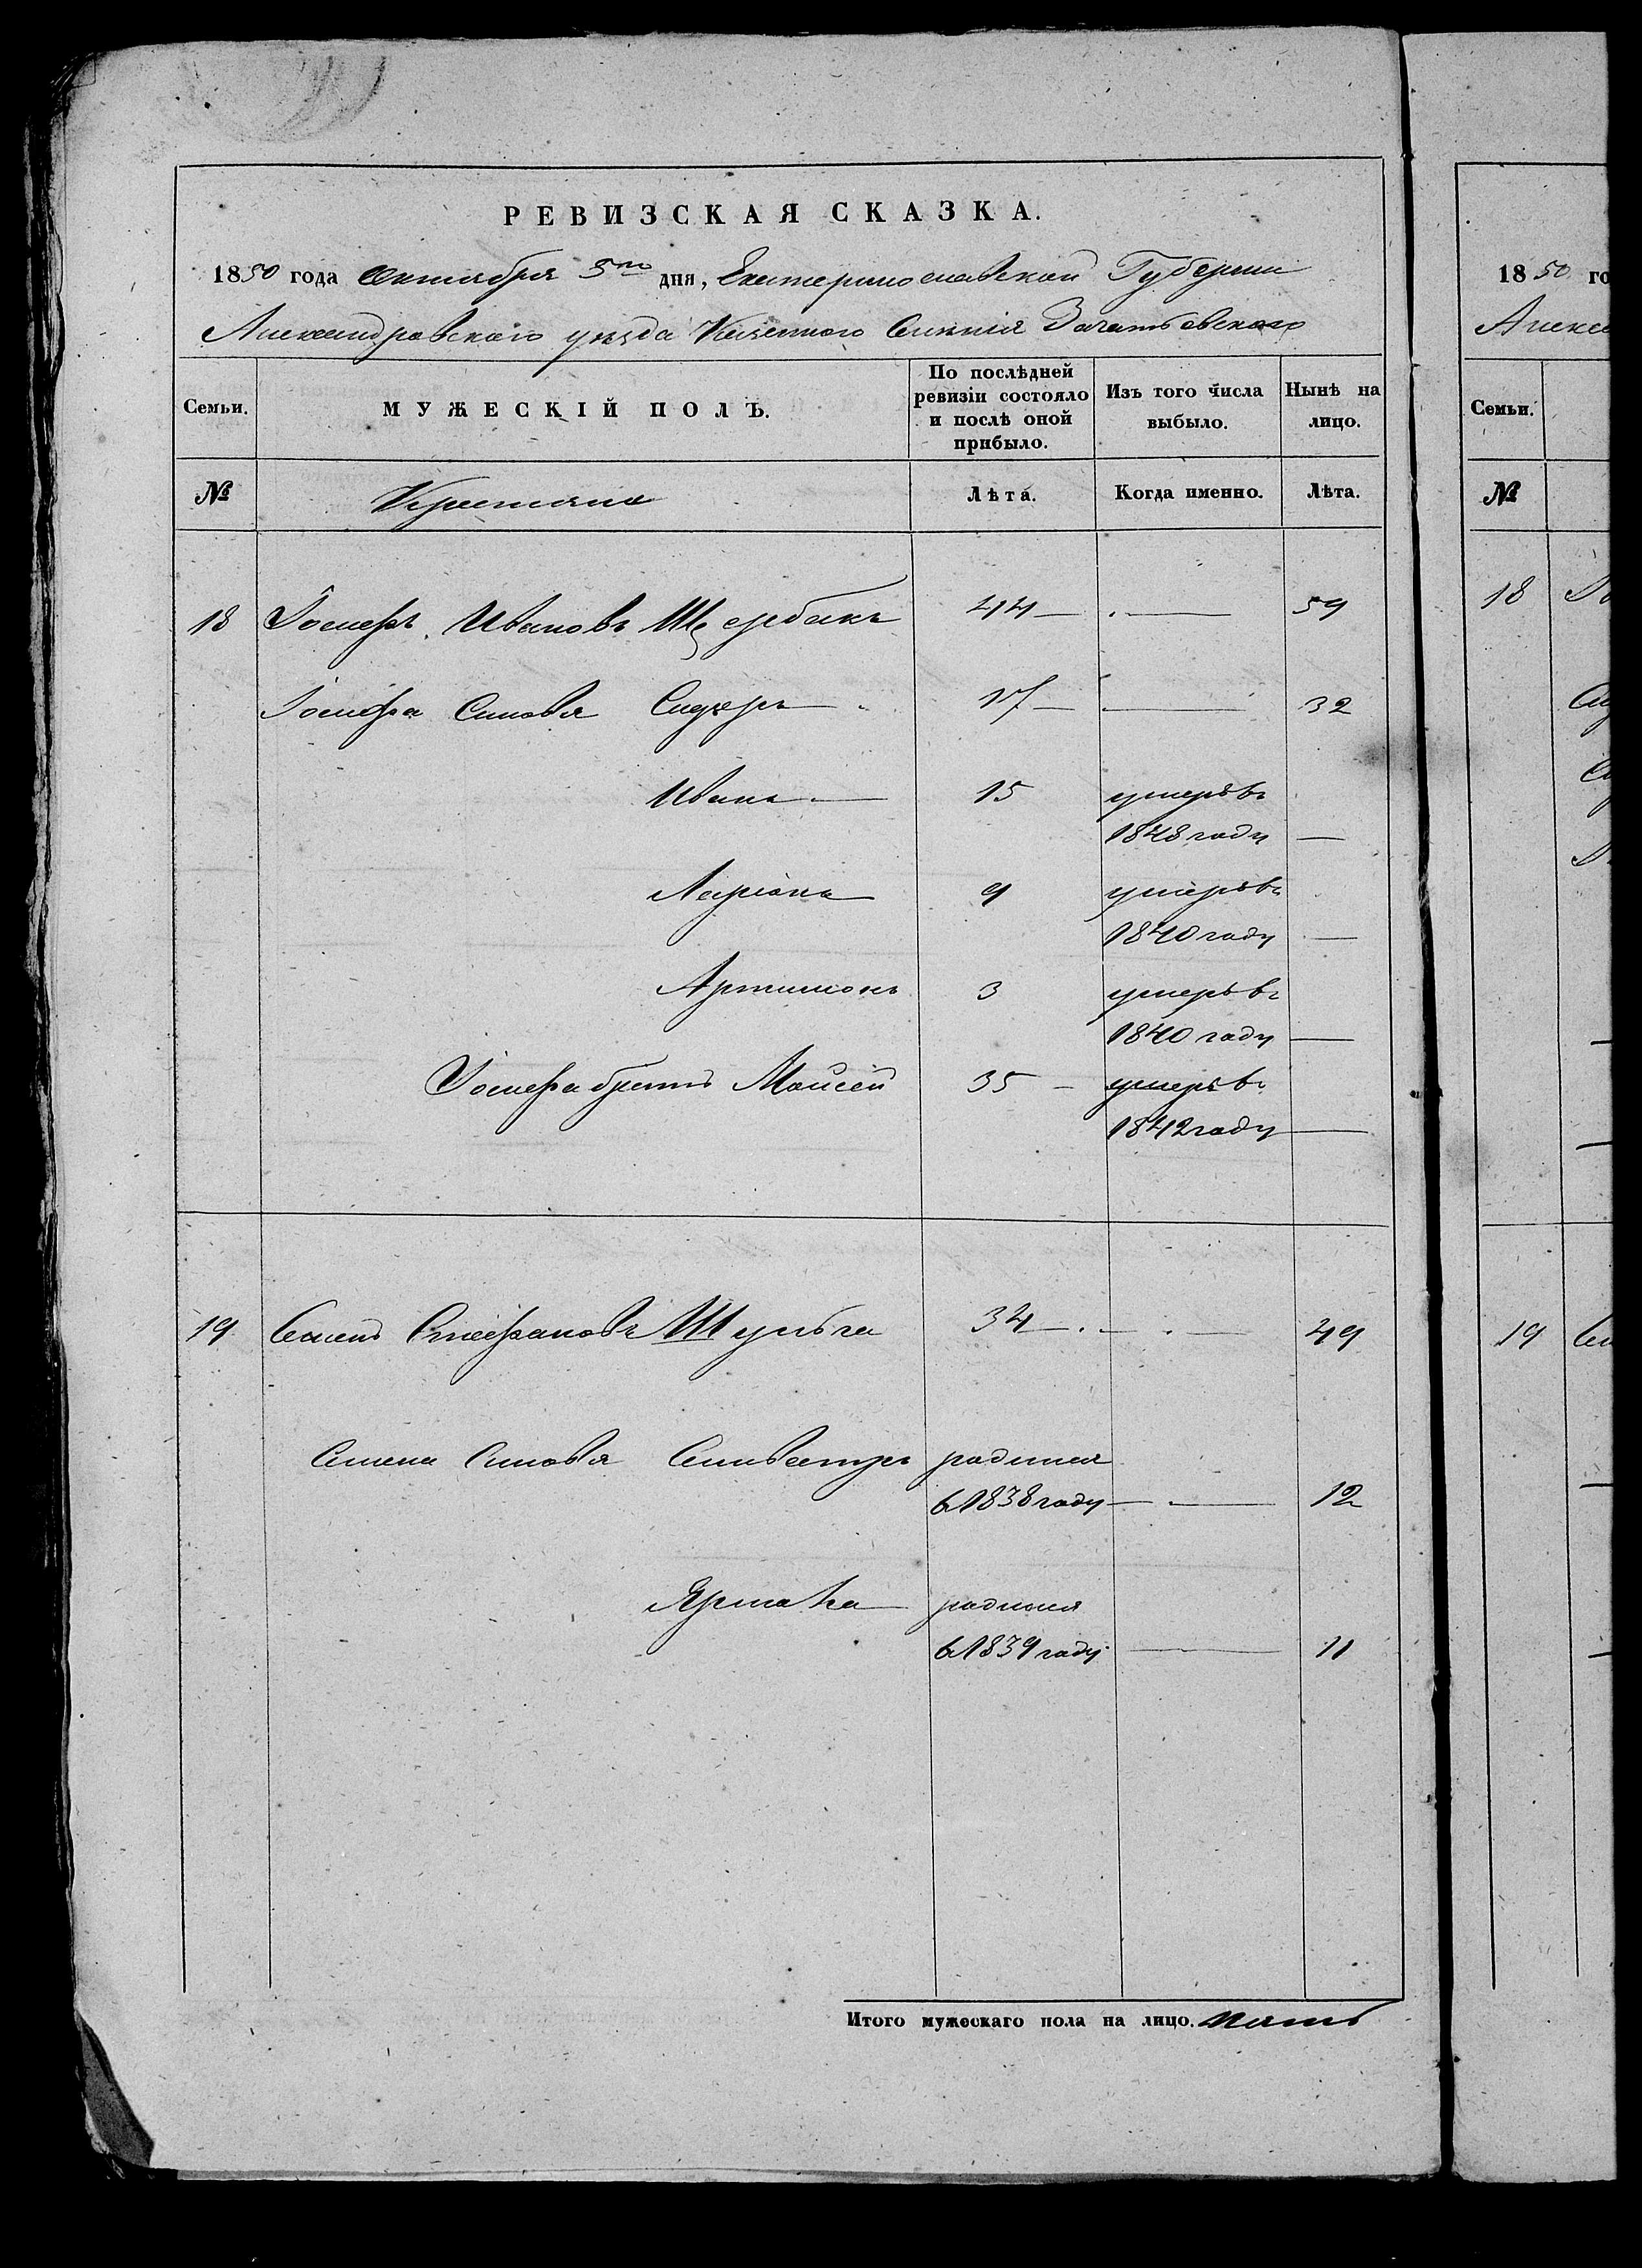 РЕВИЗСКАЯ СКАЗКА.
1850 года Октября 5го дня, Екатеринославской Губернии
Александровского уезда Казенного Селения Зачатьевского
Семьи. МУЖЕСКІЙ ПОЛЪ. По послѣдней ревизіи состояло и послѣ оной прибыло. Изъ того числа выбыло. Нынѣ на лицо.
№ Крестяне Лѣта. Когда именно. Лѣта.
18 Іосифъ Ивановъ Щербакъ 44 — — 59
Іосифа Синовя Сидоръ 17 — — 32
Иванъ — 15 умеръ въ
1848 году —
Ларіонъ 9 умеръ въ
1840 году —
Артимонъ 3 умеръ въ
1840 году —
Іосифа братъ Моисей 35 — умеръ въ
1842 году —
19 Семенъ Стефановъ Шульга 34 — — 49
Семена Синовя Селивестръ родился
в 1838 году — — 12
родился
в 1839 году — 11
Итого мужескаго пола на лицо. пять
18 50 го
Алекса
Семьи.
№
18
19